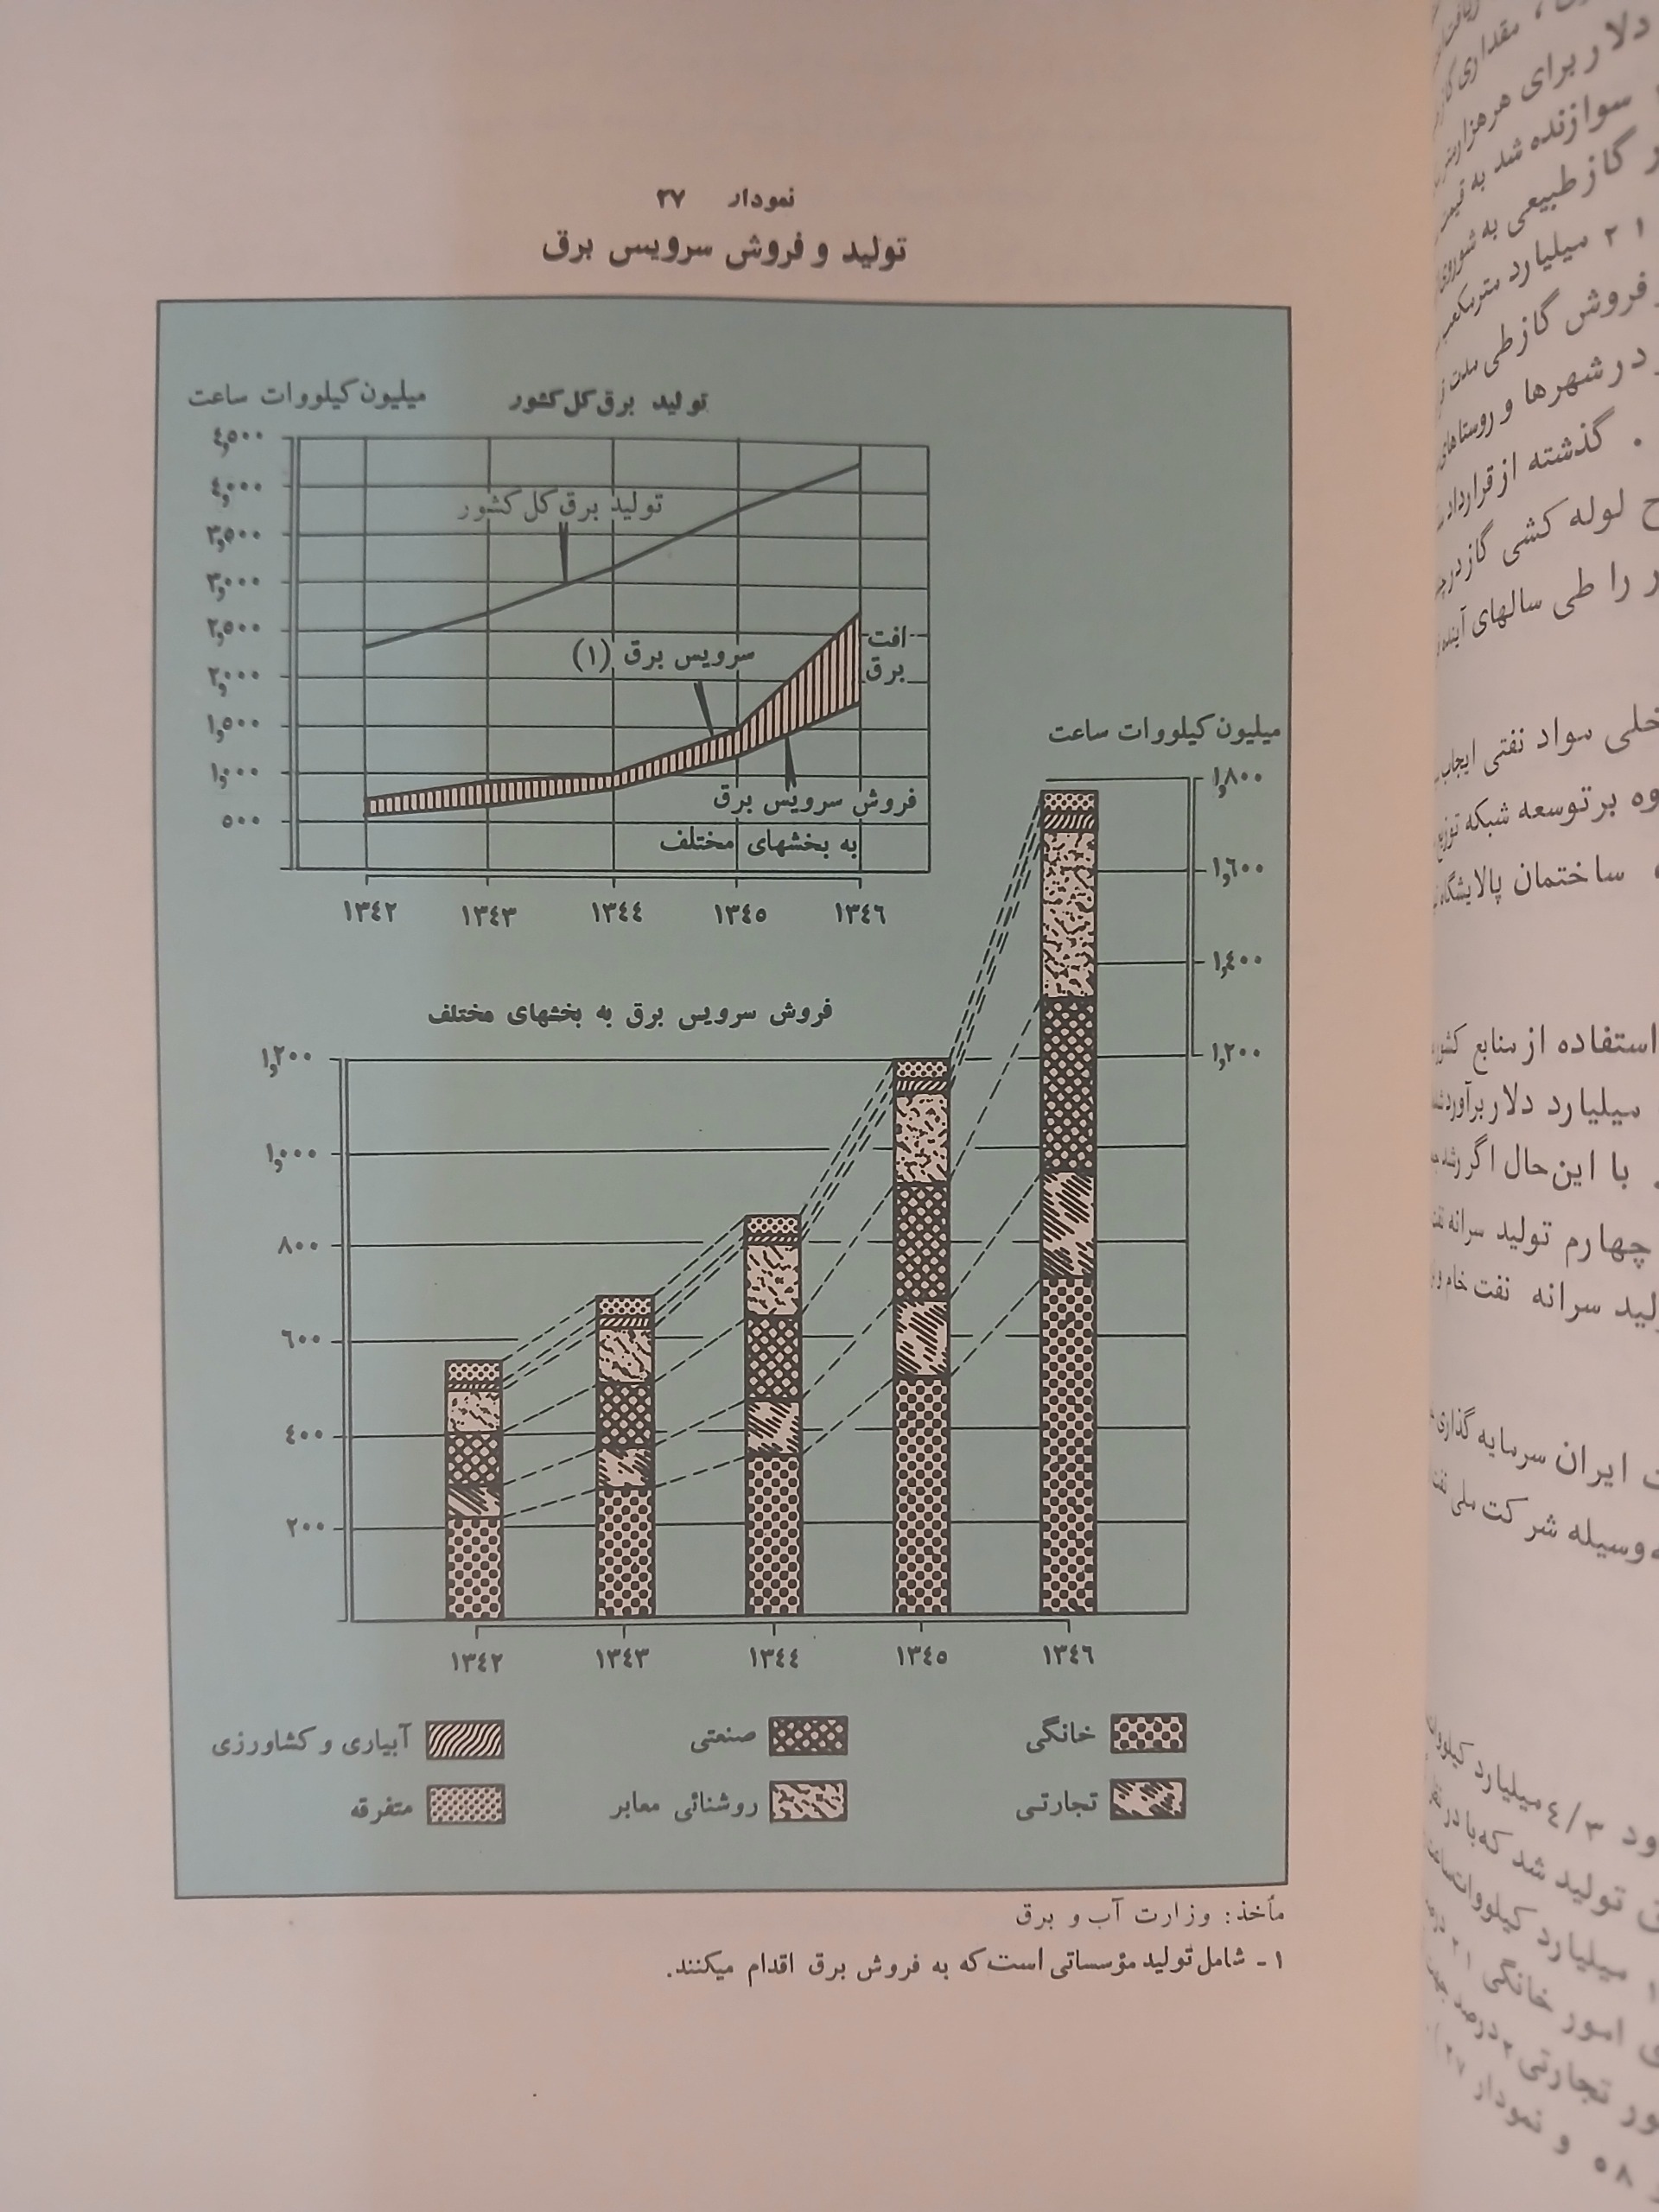 نمودار ۲۷
تولید و فروش سرویس برق
میلیون کیلووات ساعت
تولید برق کل کشور
۴,۵۰۰
۴,۰۰۰
۳,۵۰۰
۳,۰۰۰
۲,۵۰۰
۲,۰۰۰
۱,۵۰۰
۱,۰۰۰
۵۰۰
تولید برق کل کشور
سرویس برق (۱)
افت
برق
فروش سرویس برق
به بخشهای مختلف
۱۳۴۲ ۱۳۴۳ ۱۳۴۴ ۱۳۴۵ ۱۳۴۶
میلیون کیلووات ساعت
۱,۸۰۰
۱,۶۰۰
۱,۴۰۰
۱,۲۰۰
فروش سرویس برق به بخشهای مختلف
۱,۲۰۰
۱,۰۰۰
۸۰۰
۶۰۰
۴۰۰
۲۰۰
۱۳۴۲ ۱۳۴۳ ۱۳۴۴ ۱۳۴۵ ۱۳۴۶
خانگی صنعتی آبیاری و کشاورزی
تجارتی روشنائی معابر متفرقه
مأخذ: وزارت آب و برق
۱ـ شامل تولید مؤسساتی است که به فروش برق اقدام میکنند.
دلار برای هر هزار متر
سوازنده شد به قیمت
گاز طبیعی به شوروی
۲۱ میلیارد مترمکعب
فروش گاز طی مدت
در شهرها و روستاهای
. گذشته از قرارداد
لوله کشی گاز در
را طی سالهای آینده
سواد نفتی ایجاب
بر توسعه شبکه توزیع
ساختمان پالایشگاه
استفاده از منابع کشور
میلیارد دلار برآورد
. با این حال اگر رشد
چهارم تولید سرانه
سرانه نفت خام و
ایران سرمایه گذاری
وسیله شرکت ملی نفت
۴/۳ میلیارد کیلووات
تولید شد که با در
میلیارد کیلووات ساعت
امور خانگی
تجارتی ۲ درصد
۵۸ و نمودار ۲۷